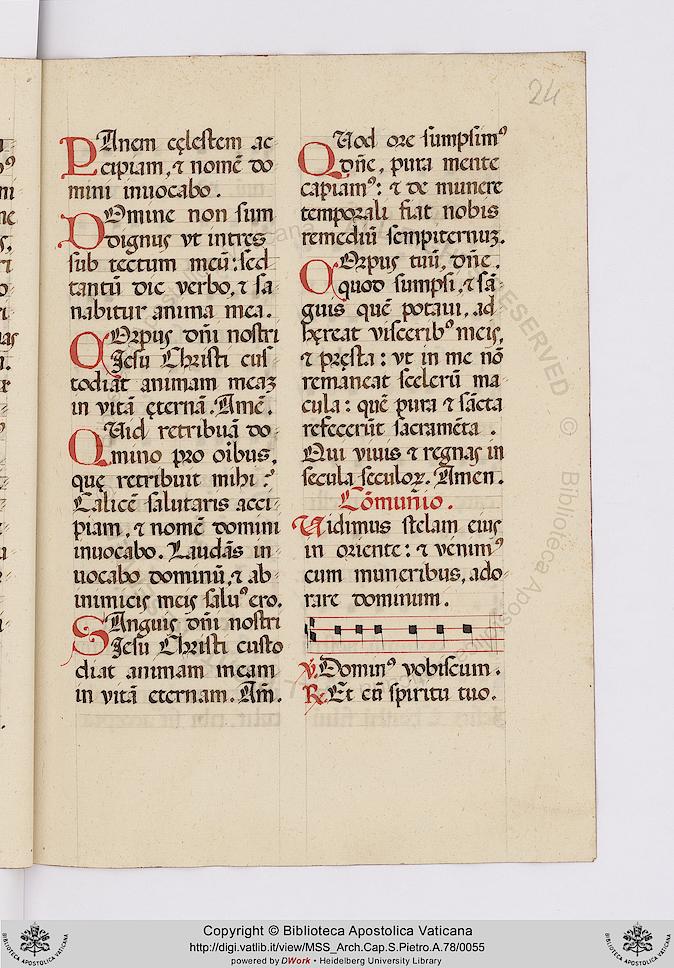 24
PAnem cęlestem ac
cipiam, ⁊ nomẽ do
mini inuocabo.
DOmine non sum
dignus vt intres
sub tectum meũ: sed
tantũ dic verbo, ⁊ sa
nabitur anima mea.
COrpus dñi nostri
Jesu Christi cus
todiat animam meaʒ
in vitã ęternã. Amẽ.
QUid retribuã do
mino pro oĩbus,
quę retribuit mihi:
Calicẽ salutaris acci
piam, ⁊ nomẽ domini
inuocabo. Laudãs in
uocabo dominũ, ⁊ ab
inimicis meis saluꝰ ero.
SAnguis dñi nostri
Jesu Christi custo
diat animam meam
in vitã eternam. Am̃.
QUod ore sumpsimꝰ
dñe, pura mente
capiamꝰ: ⁊ de munere
temporali fiat nobis
remediũ sempiternuʒ.
COrpus tuũ, dñe,
quod sumpsi, ⁊ sã
guis quẽ potaui, ad
hęreat visceribꝰ meis,
⁊ pręsta: vt in me nõ
remaneat scelerũ ma
cula: quẽ pura ⁊ sãcta
refecerũt sacramẽta.
Qui viuis ⁊ regnas in
secula seculoꝝ. Amen.
Cõmunio.
Uidimus stelam eius
in oriente: ⁊ venimꝰ
cum muneribus, ado
rare dominum.
℣. Dominꝰ vobiscum.
℟. Et cũ spiritu tuo.
Copyright © Biblioteca Apostolica Vaticana
http://digi.vatlib.it/view/MSS_Arch.Cap.S.Pietro.A.78/0055
powered by DWork • Heidelberg University Library